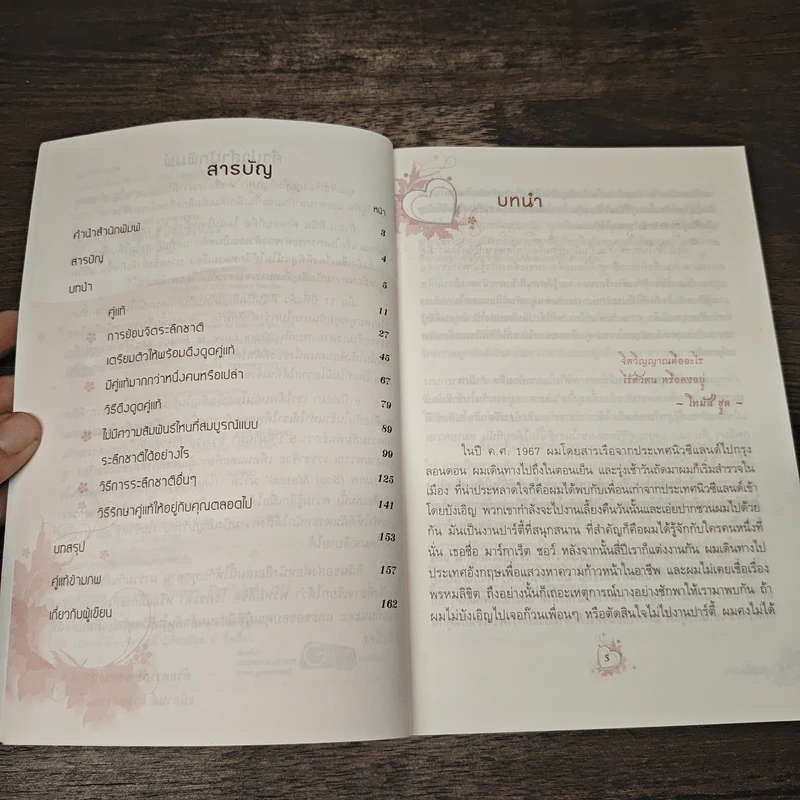 สารบัญ
หน้า
คำนำสำนักพิมพ์ 3
สารบัญ 4
บทนำ 5
คู่แท้ 11
การย้อนจิตระลึกชาติ 27
เตรียมตัวให้พร้อมดึงดูดคู่แท้ 45
มีคู่แท้มากกว่าหนึ่งคนหรือเปล่า 67
วิธีดึงดูดคู่แท้ 79
ไม่มีความสัมพันธ์ไหนที่สมบูรณ์แบบ 89
ระลึกชาติได้อย่างไร 99
วิธีการระลึกชาติอื่นๆ 125
วิธีรักษาคู่แท้ให้อยู่กับคุณตลอดไป 141
บทสรุป 153
คู่แท้ข้ามภพ 157
เกี่ยวกับผู้เขียน 162
บทนำ
จิตวิญญาณคืออะไร
ไร้ตัวตน หรือคงอยู่
~ โทมัส ฮูด ~
ในปี ค.ศ. 1967 ผมโดยสารเรือจากประเทศนิวซีแลนด์ไปกรุง
ลอนดอน ผมเดินทางไปถึงในตอนเย็น และรุ่งเช้าวันถัดมาผมก็เริ่มสำรวจใน
เมือง ที่น่าประหลาดใจก็คือผมได้พบกับเพื่อนเก่าจากประเทศนิวซีแลนด์เข้า
โดยบังเอิญ พวกเขากำลังจะไปงานเลี้ยงคืนวันนั้นและเอ่ยปากชวนผมไปด้วย
กัน มันเป็นงานปาร์ตี้ที่สนุกสนาน ที่สำคัญก็คือผมได้รู้จักกับใครคนหนึ่งที่
นั่น เธอชื่อ มาร์กาเร็ต ชอว์ หลังจากนั้นสี่ปีเราก็แต่งงานกัน ผมเดินทางไป
ประเทศอังกฤษเพื่อแสวงหาความก้าวหน้าในอาชีพ และผมไม่เคยเชื่อเรื่อง
พรหมลิขิต ถึงอย่างนั้นก็เถอะเหตุการณ์บางอย่างชักพาให้เรามาพบกัน ถ้า
ผมไม่บังเอิญไปเจอก๊วนเพื่อนๆ หรือตัดสินใจไม่ไปงานปาร์ตี้ ผมคงไม่ได้
5